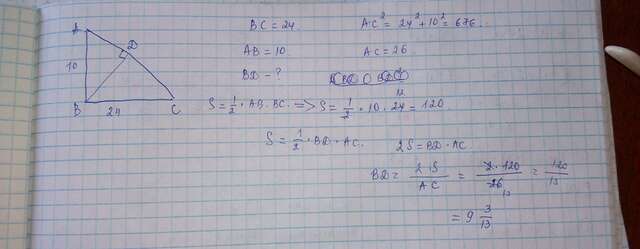 A
D
10
B
24
C
BC = 24.
AC² = 24² + 10² = 676.
AB = 10
AC = 26
BD - ?
S = 1/2 · AB · BC. => S = 1/2 · 10 · 24 = 120.
S = 1/2 · BD · AC.
2S = BD · AC
BD = 2S/AC = 2 · 120/26 13 = 120/13
= 9 3/13